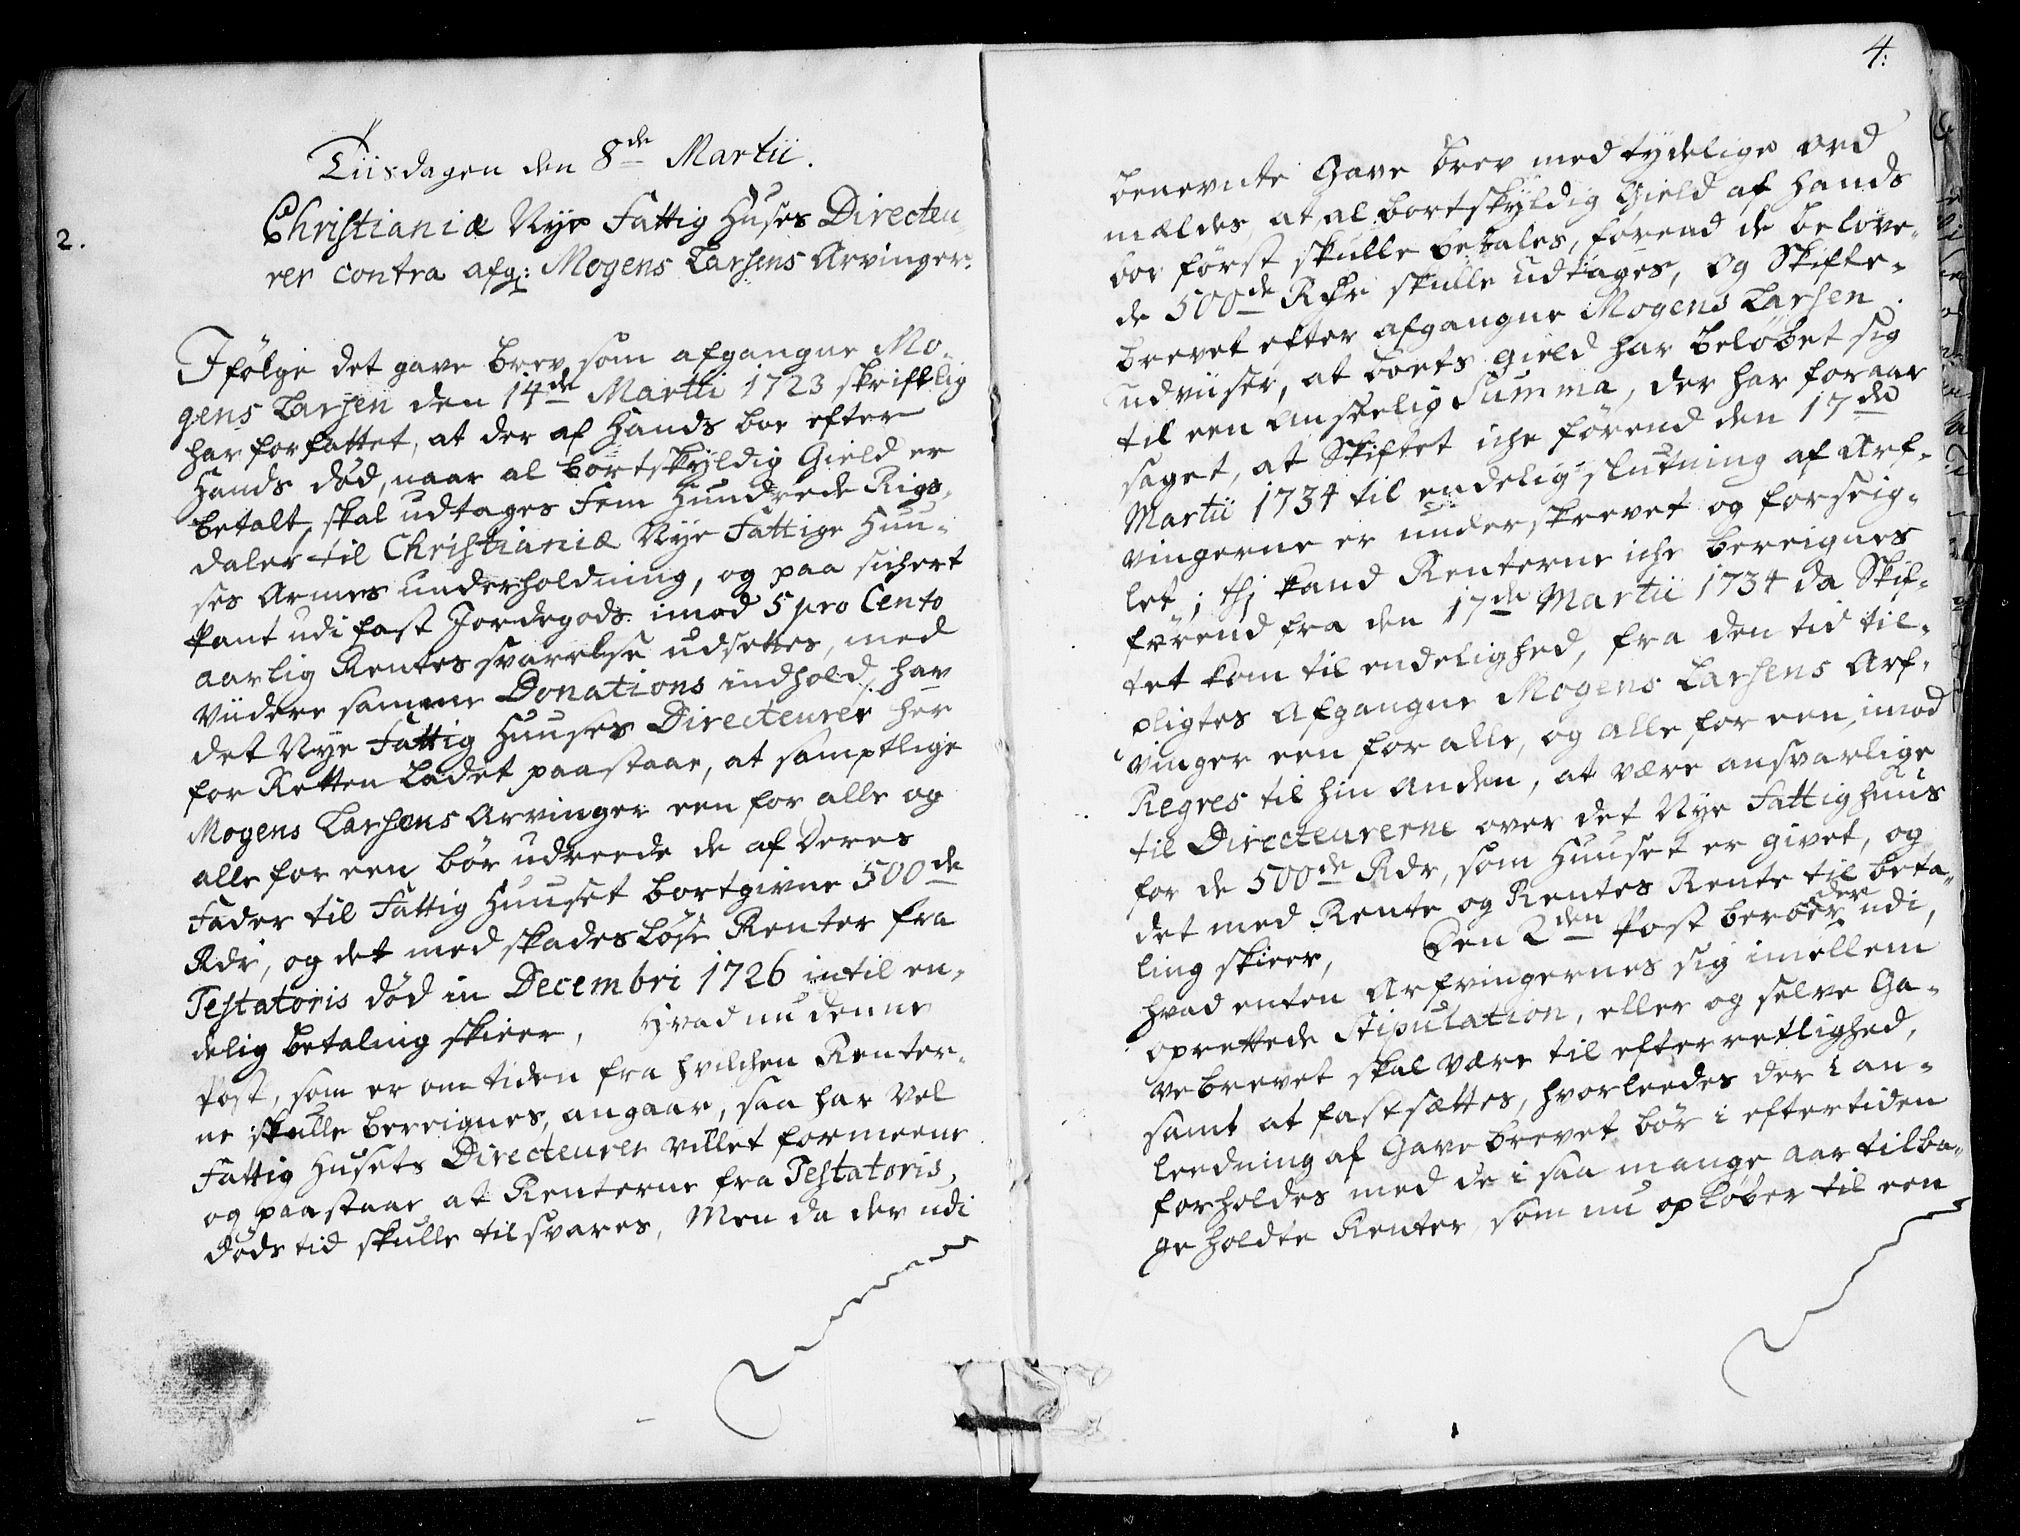 Tiisdagen den 8de Martii.
2.
Christianiæ Nye Fattig Huses Directeu
rer contra afg: Mogens Larsens Arvinger.
Ifølge det gave brev, som afgangne Mo-
gens Larsen den 14de Martii 1723 skriftlig
har forfattet, at der af Hands boe efter
Hands død, naar al bortskyldig Gield er
betalt, skal udtages Fem Hundrede Rigs-
daler til Christianiæ Nye Fattige Huu-
ses Armes underholdning, og paa sichert
Pant udi fast Jordegods imod 5 pro Cento
aarlig Rentes svarelse udsettes, med
Viidere samme Donations indhold, har
det Nye Fattig Huuses Directeurer her
for Retten Ladet paastaae, at samptlige
Mogens Larsens Arvinger een for alle og
alle for een bør udreede de af Deres
Fader til Fattig Huuset bortgivne 500de
Rdr, og det med skadesløse Renter fra
Testatoris død in Decembri 1726 intil en-
delig betaling skieer, Hvad nu denne
Post, som er om tiden fra hvilchen Renter-
ne skulle bereignes, angaar, saa har Vel
Fattig Husets Directeurer villet formeene
og paastaae at Renterne fra Testatoris,
døds tid skulle tilsvares, Men da der udi
4:
benevnte Gave brev med tydelige ord
mældes, at al bortskyldig Gield af Hands
boe først skulle betales, førend de belove-
de 500de Rdr skulle udtages, og Skifte-
brevet efter afgangne Mogens Larsen
udviiser, at boets Gield har beløbet sig
til een Anseelig Summa, der har foraar
saget, at Skiftet iche førend den 17de
Martii 1734 til endelig slutning af Arf-
vingerne er underskrevet og forseig-
let; thi kand Renterne iche bereignes
førend fra den 17de Martii 1734 da Skif-
tet kom til endelighed, fra den tid til-
pligtes Afgangne Mogens Larsens Arf-
vinger een for alle, og alle for een, imod
Regres til hin anden, at være ansvarlige
til Directeurerne over det Nye Fattighuus
for de 500de Rdr, som Huuset er givet, og
det med Rente og Rentes Rente til beta-
ling skieer, Den 2den Post beroer der udi,
hvad enten Arfvingernes sig imellem
oprettede Stipulation, eller og selve Ga-
vebrevet skal være til efterretlighed,
samt at fastsættes, hvorleedes der I an-
leedning af Gavebrevet bør i eftertiden
forholdes med de i saa mange aar tilba-
ge holdte Renter, som nu opløber til een